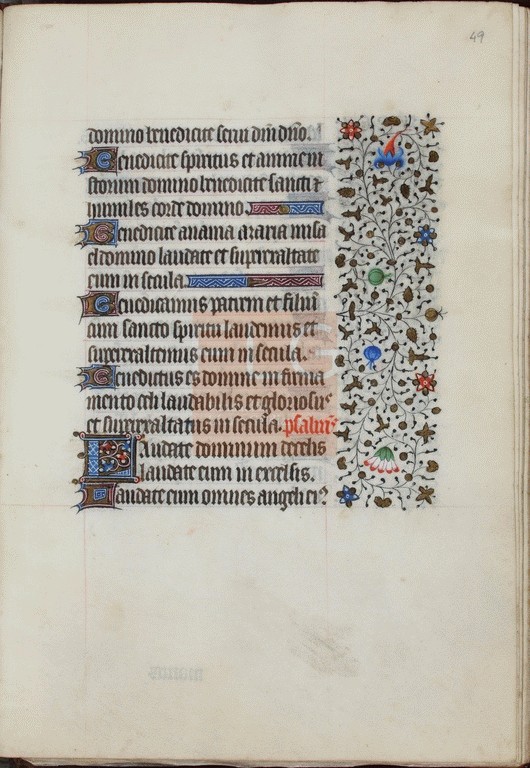 49
domino benedicite serui dñi dño.
Benedicite spiritus et anime iu
storum domino benedicite sancti ⁊
humiles corde domino.
Benedicite anania azaria misa
el domino laudate et superexaltate
eum in secula.
Benedicamus patrem et filiũ
cum sancto spiritu laudemus et
superexaltemus eum in secula.
Benedictus es domine in firma
mento celi laudabilis et gloriosus
et superexaltatus in secula. psalmus
Laudate dominum de celis
laudate eum in excelsis.
Laudate eum omnes angeli eiꝰ